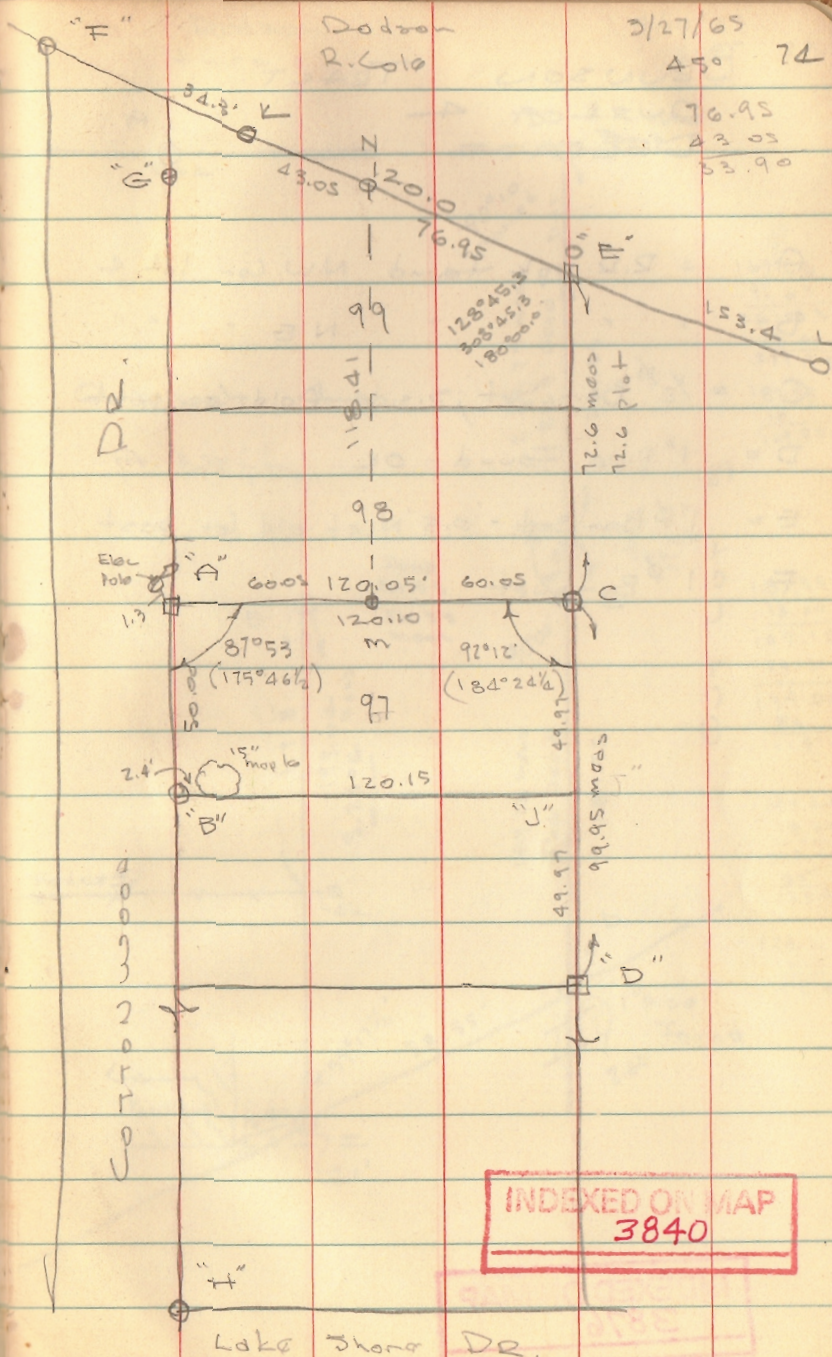 "F"
Dodson
3/27/65
R. Cole
45°
74
76.95
43.05
33.90
34.3'
K
"G"
N
43.05
120.0
76.95
"E"
128°45.3
308°45.3
180°00.0
153.4
99
118.41
72.6 meas
72.6 plat
DR.
98
Elec
Pole
"A"
1.3
60.05
120.05'
60.05
C
120.10
M
87°53
(175°46½)
92°12'
(184°24¼)
50.00
97
49.97
99.95 meas
2.4'
15"
maple
120.15
"B"
"J"
49.97
"D"
COTTONWOOD
INDEXED ON MAP
3840
"H"
Lake Shore DR.